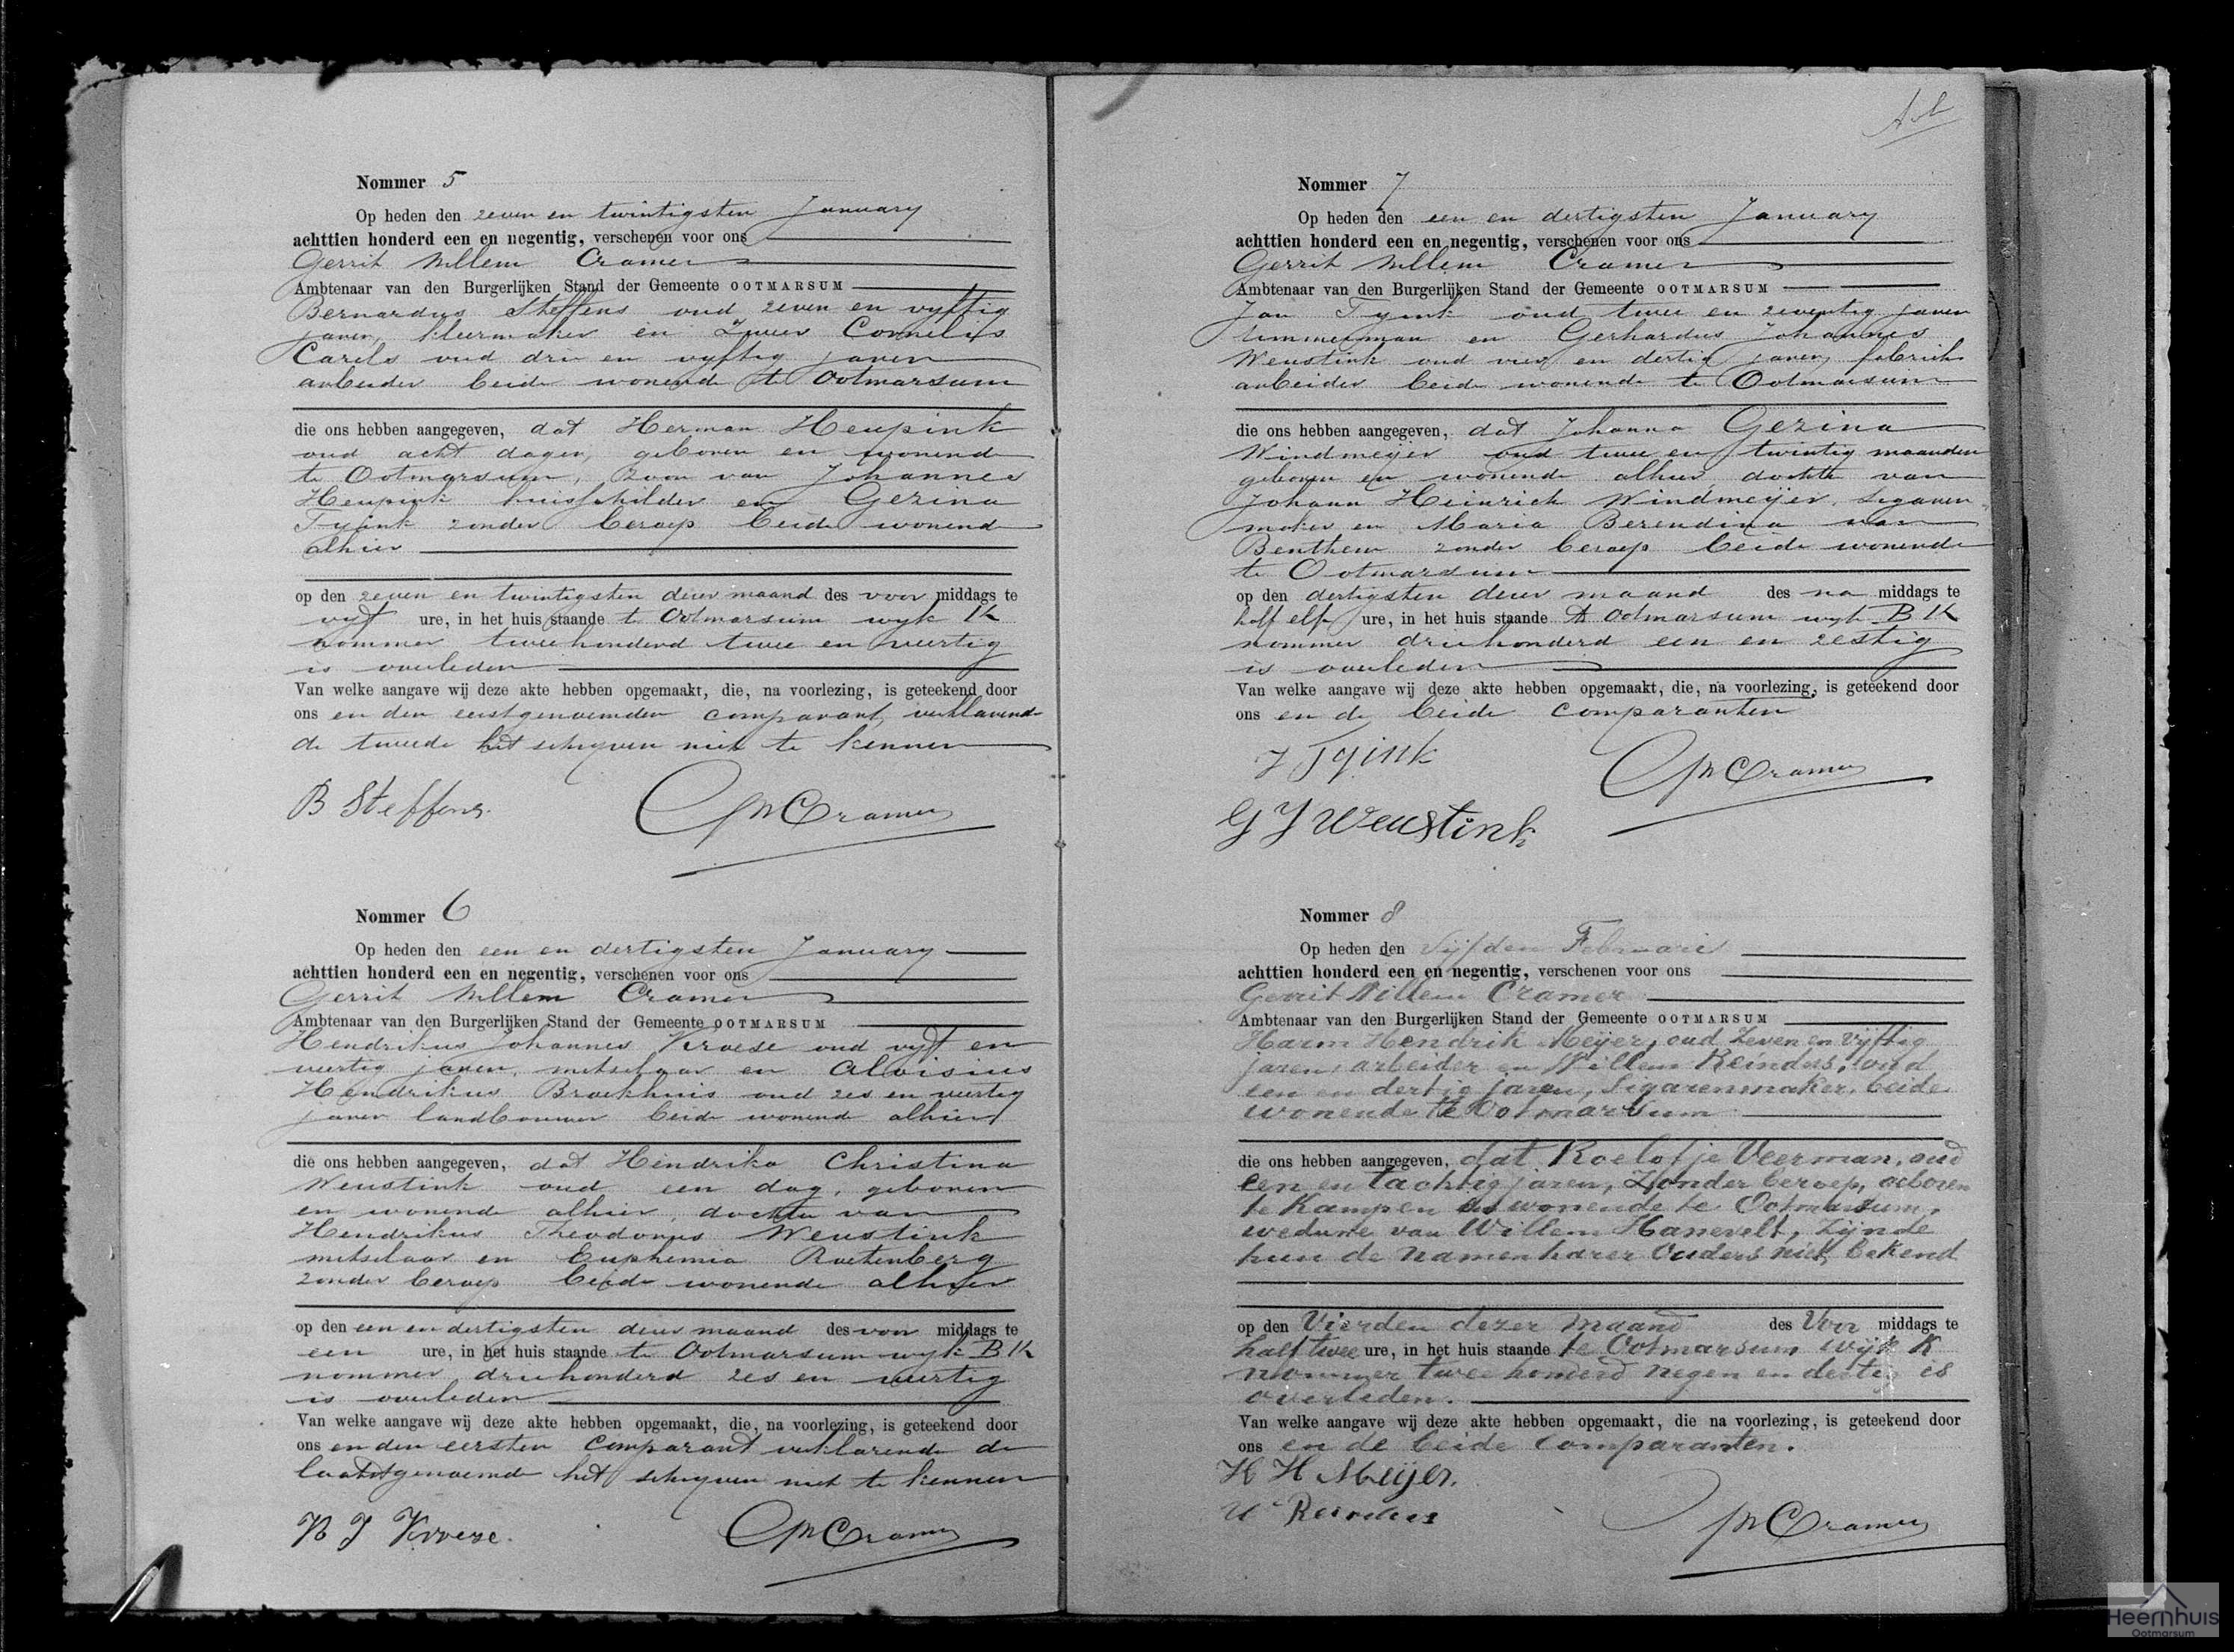 Nommer 5
Op heden den zeven en twintigsten January
achttien honderd een en negentig, verschenen voor ons
Gerrit Willem Cramer
Ambtenaar van den Burgerlijken Stand der Gemeente OOTMARSUM
Bernardus Steffens oud zeven en vyftig
jaren, kleermaker en Zweer Cornelis
Carels oud drie en vyftig jaren
arbeider beide wonende te Ootmarsum
die ons hebben aangegeven, dat Herman Heupink
oud acht dagen, geboren en wonende
te Ootmarsum, zoon van Johannes
Heupink huisschilder en Gezina
Tyink zonder beroep beide wonend
alhier
op den zeven en twintigsten dezer maand des voor middags te
vyf ure, in het huis staande te Ootmarsum wyk K
nommer tweehonderd twee en veertig
is overleden
Van welke aangave wij deze akte hebben opgemaakt, die, na voorlezing, is geteekend door
ons en den eerstgenoemden comparant, verklarende
de tweede het schryven niet te kennen
B Steffens.
GWCramer
Nommer 6
Op heden den een en dertigsten January
achttien honderd een en negentig, verschenen voor ons
Gerrit Willem Cramer
Ambtenaar van den Burgerlijken Stand der Gemeente OOTMARSUM
Hendrikus Johannes Kroese oud vyf en
veertig jaren, metselaar en Aloisius
Hendrikus Broekhuis oud zes en veertig
jaren landbouwer beide wonend alhier
die ons hebben aangegeven, dat Hendrika Christina
Weustink oud een dag, geboren
en wonende alhier, dochter van
Hendrikus Theodorus Weustink
metselaar en Euphemia Roetenberg
zonder beroep beide wonende alhier
op den een en dertigsten dezer maand des voor middags te
een ure, in het huis staande te Ootmarsum wyk B K
nommer driehonderd zes en veertig
is overleden
Van welke aangave wij deze akte hebben opgemaakt, die, na voorlezing, is geteekend door
ons en den eersten comparant verklarende de
laatstgenoemde het schryven niet te kennen
H J Kroese.
GWCramer
Nommer 7
Op heden den een en dertigsten January
achttien honderd een en negentig, verschenen voor ons
Gerrit Willem Cramer
Ambtenaar van den Burgerlijken Stand der Gemeente OOTMARSUM
Jan Tyink oud twee en zeventig jaren
timmerman en Gerhardus Johannes
Weustink oud vier en dertig jaren, fabriek
arbeider beide wonende te Ootmarsum
die ons hebben aangegeven, dat Johanna Gezina
Windmeijer oud twee en twintig maanden
geboren en wonende alhier, dochter van
Johann Heinrich Windmeijer, sigaren
maker en Maria Berendina van
Benthem zonder beroep beide wonende
te Ootmarsum
op den dertigsten dezer maand des na middags te
half elf ure, in het huis staande te Ootmarsum wyk B K
nommer driehonderd een en zestig
is overleden
Van welke aangave wij deze akte hebben opgemaakt, die, na voorlezing, is geteekend door
ons en de beide comparanten
J Tyink
GWCramer
G J Weustink
Nommer 8
Op heden den Vijfden Februarie
achttien honderd een en negentig, verschenen voor ons
Gerrit Willem Cramer
Ambtenaar van den Burgerlijken Stand der Gemeente OOTMARSUM
Harm Hendrik Meijer, oud Zeven en Vijftig
jaren, arbeider en Willem Reinders, oud
een en dertig jaren, Sigarenmaker, beide
wonende te Ootmarsum
die ons hebben aangegeven, dat Roelofje Veerman, oud
een en tachtig jaren, Zonder beroep, geboren
te Kampen en wonende te Ootmarsum,
weduwe van Willem Hanevelt, Zijnde
hun de namen harer Ouders niet bekend
op den Vierden dezer maand des Voor middags te
half twee ure, in het huis staande te Ootmarsum wijk K
nommer twee honderd negen en dertig is
overleden.
Van welke aangave wij deze akte hebben opgemaakt, die na voorlezing, is geteekend door
ons en de beide Comparanten.
H H Meijer.
W Reinders
GWCramer
Heernhuis
Ootmarsum